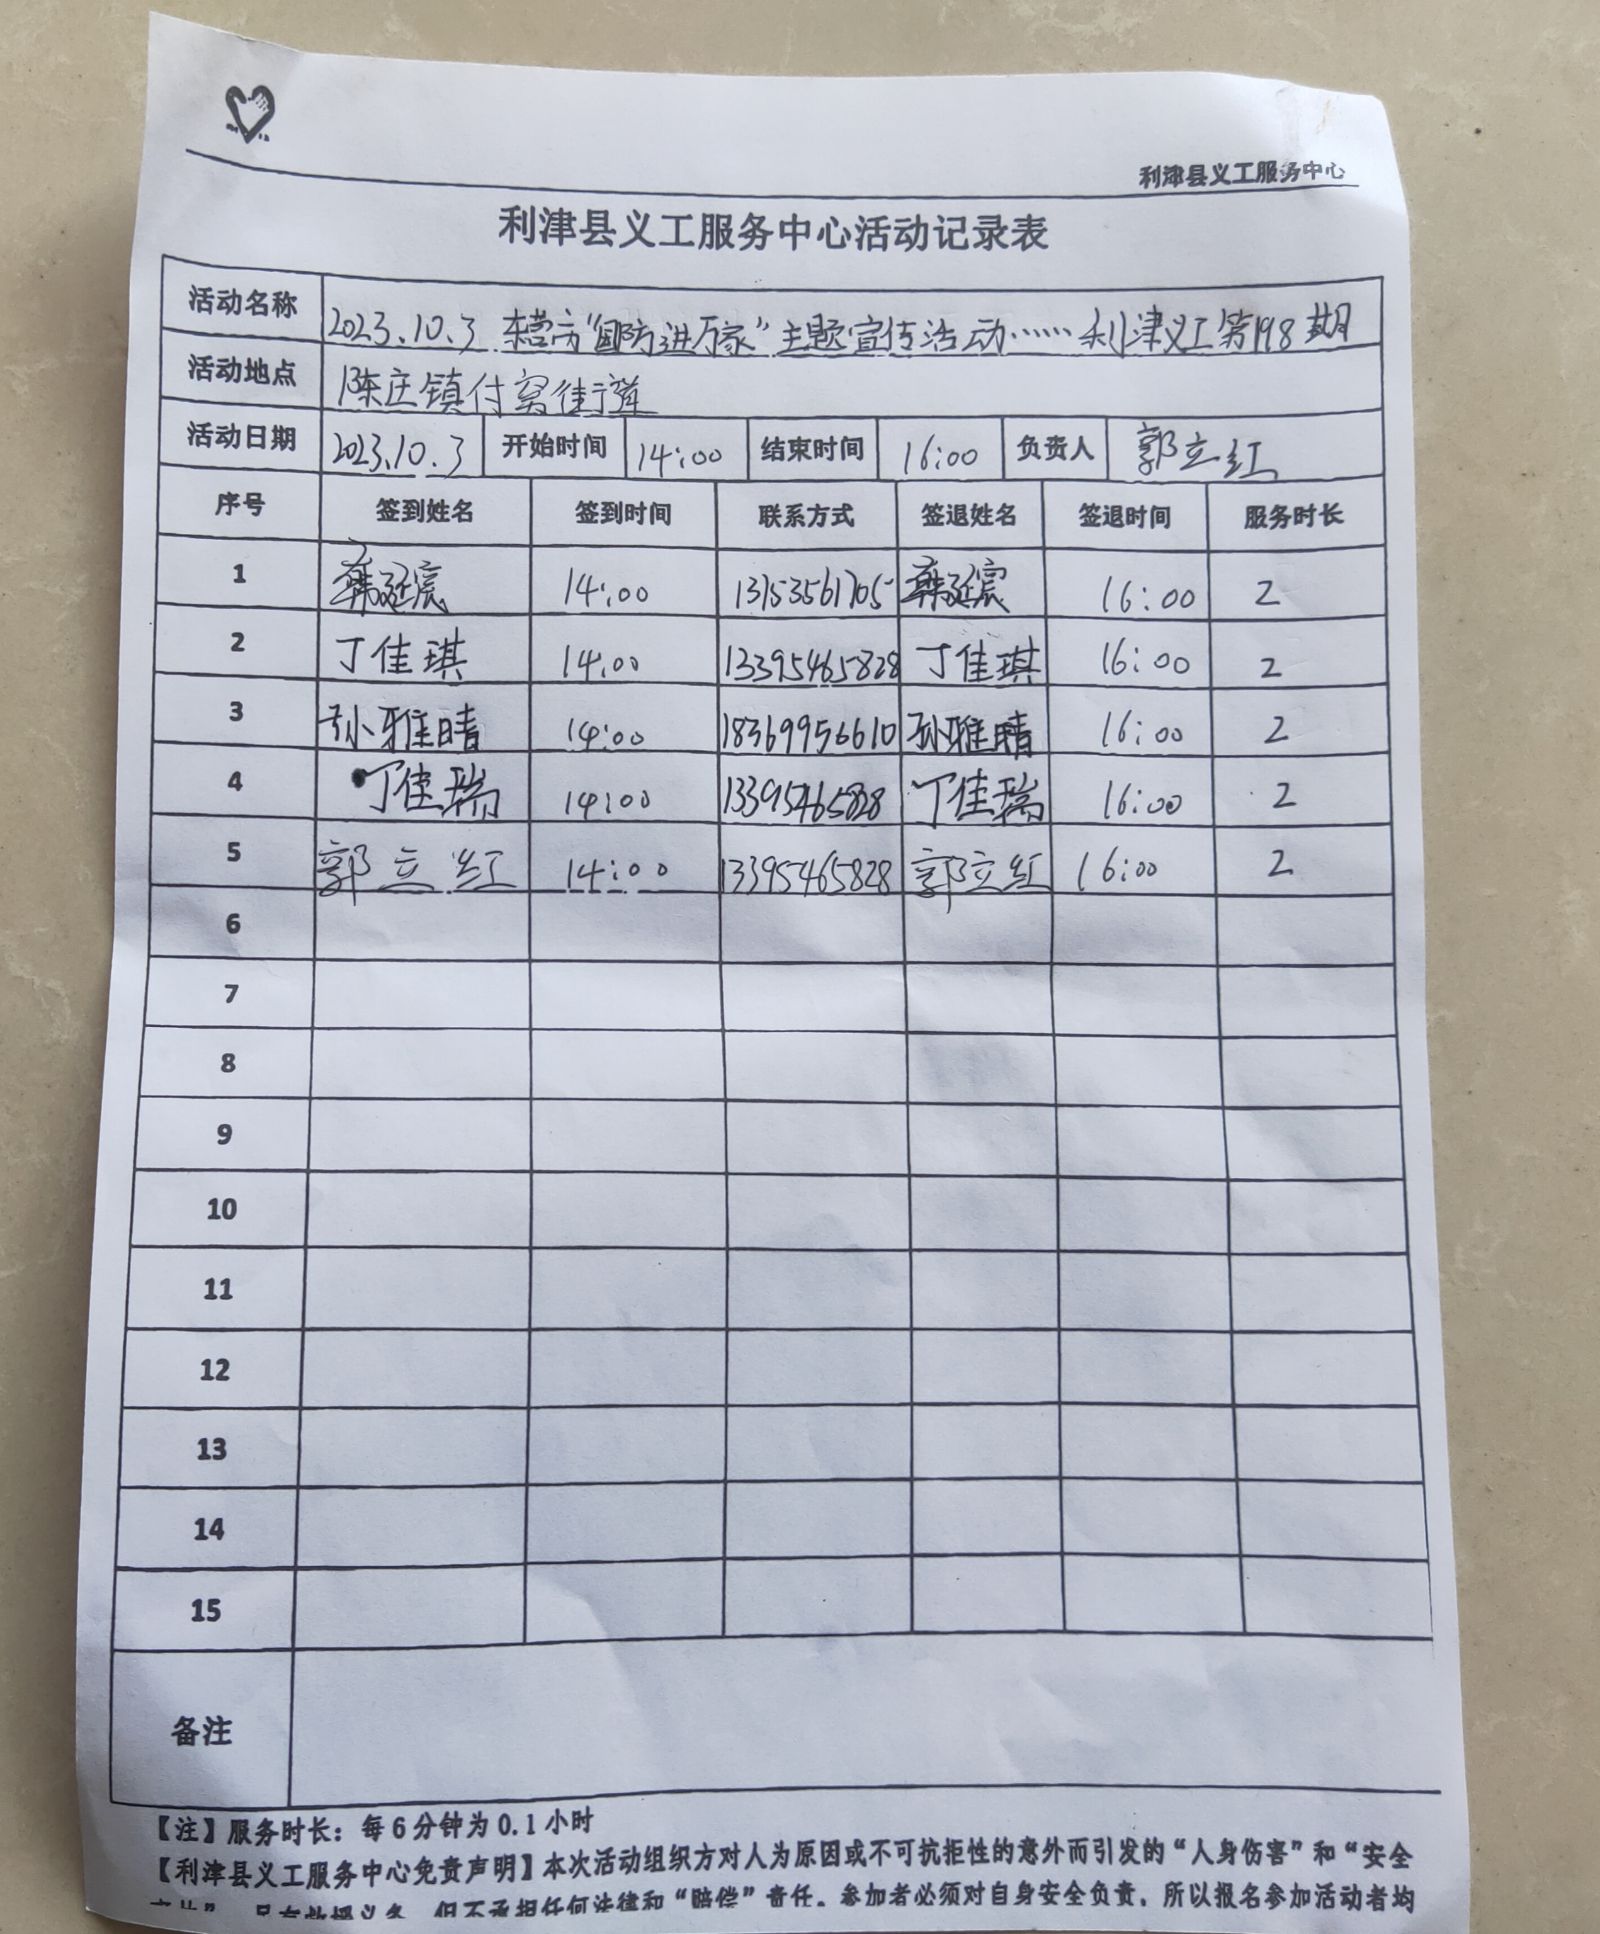 利津县义工服务中心
利津县义工服务中心活动记录表
活动名称 2023.10.3 东营市"国防进万家"主题宣传活动……利津义工第198期
活动地点 陈庄镇付窝街
活动日期 2023.10.3 开始时间 14:00 结束时间 16:00 负责人 郭立红
序号 签到姓名 签到时间 联系方式 签退姓名 签退时间 服务时长
1 韩延宸 14:00 13153561705 韩延宸 16:00 2
2 丁佳琪 14:00 13395465828 丁佳琪 16:00 2
3 孙雅晴 14:00 18369956610 孙雅晴 16:00 2
4 丁佳瑞 14:00 13395465828 丁佳瑞 16:00 2
5 郭立红 14:00 13395465828 郭立红 16:00 2
6
7
8
9
10
11
12
13
14
15
备注
【注】服务时长：每6分钟为0.1小时
【利津县义工服务中心免责声明】本次活动组织方对人为原因或不可抗拒性的意外而引发的“人身伤害”和“安全
但不承担任何法律和“赔偿”责任。参加者必须对自身安全负责，所以报名参加活动者均